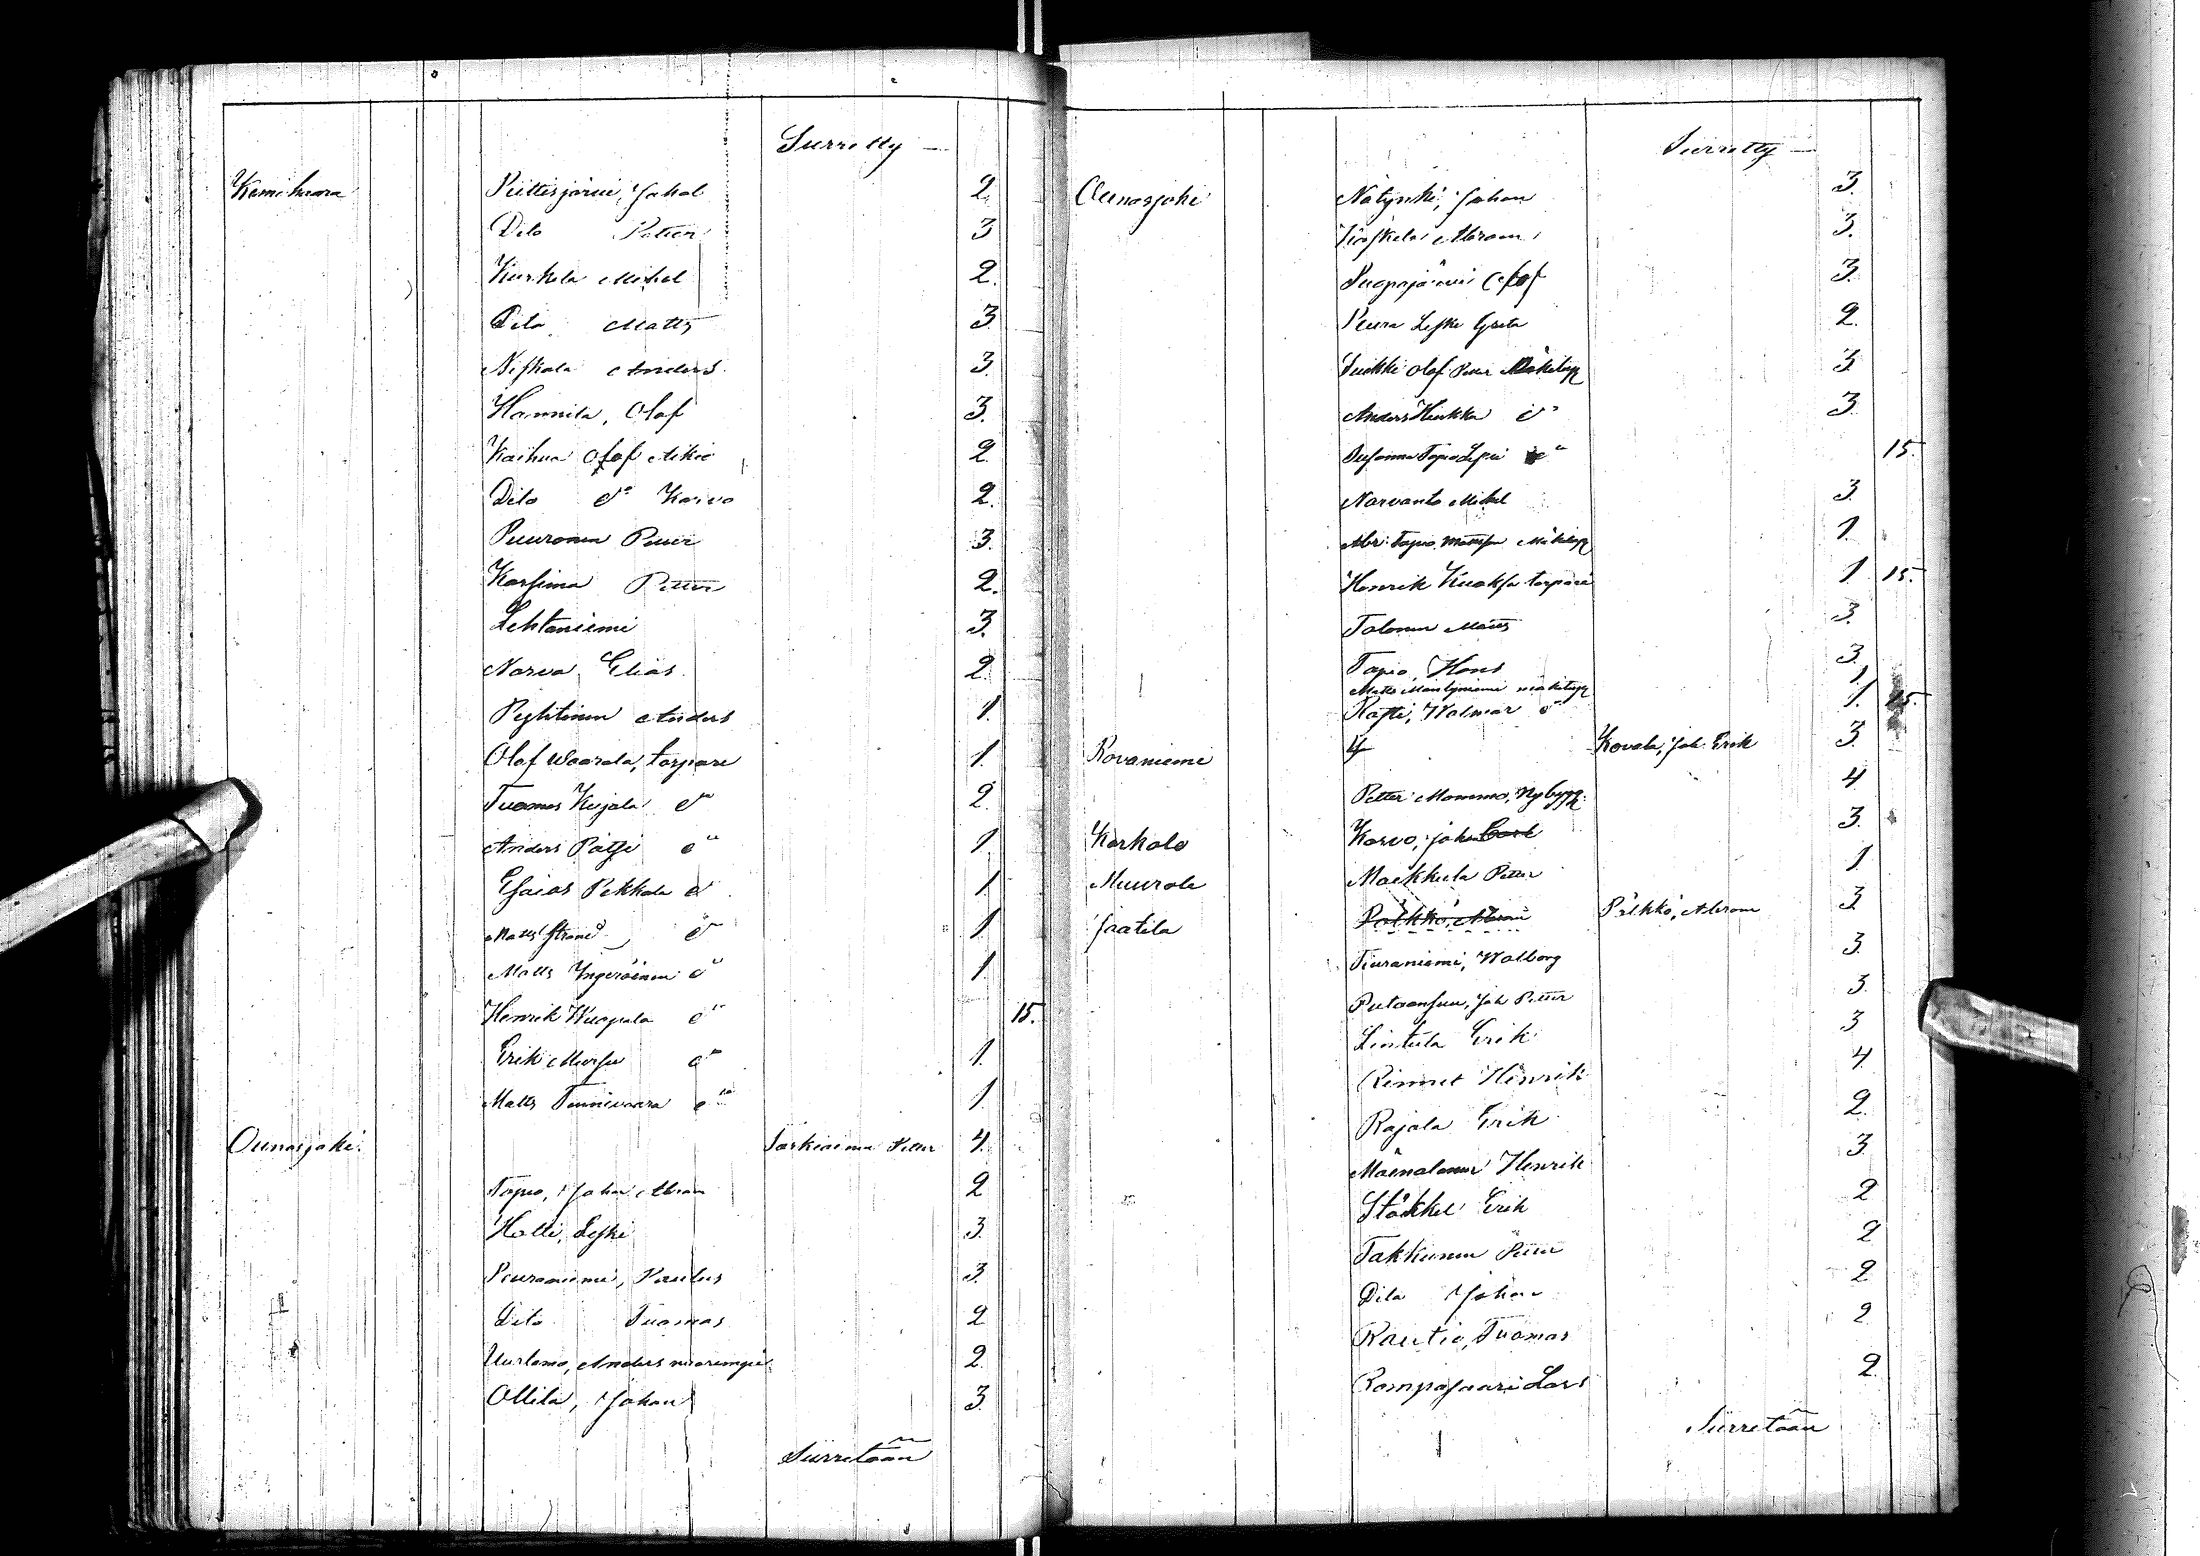 Siirretty —
Kemihaara Piittisjärvi, Jakob 2.
Dito Petter 3
Kurkela Mickel 2.
Dito Matts 3
Niskala Anders 3.
Hannila, Olof 3.
Kaihua Olof Mikko 2
Dito d:o Karvo 2
Puuronen Petter 3.
Karsima Petter 2.
Lehtoniemi 3.
Narva Elias 2
Pyhtinen Anders 1.
Olof Waarala, torpare 1.
Tuomas Kujala d:o 2.
Anders Pätsi d:o 1
Esaias Pekkala d:o 1
Matts Strand d:o 1
Matts Yngeröinen d:o 1.
Henrik Kuopala d:o 15.
Erik Mursu d:o 1.
Matts Tennivaara d:o 1
Ounasjoki Särkioima Petter 4.
Tapio, Johan Abram 2
Halli, Leski 3.
Peuraniemi, Paulus 3
Dito Tuomas 2
Uurlamo, Anders nuorempi 2.
Ollila, Johan 3.
Siirretään
Siirretty —
Ounasjoki Nätynki, Johan 3.
Abram 3.
Suopajärvi Olof 3.
Peura Leski Greta 2.
Suikki Olof Petter Mäkitup 3
Anders Heikka d:o 3
Susanna Tapio Leski d:o 15.
Narvanto Mikel 3.
Abr: Tapio Mattsson Mäkitup 1.
Henrik Kuoksa torpari 1 15.
Talonen Matts 3.
Tapio, Hans 3
Matts Mäntyniemi mäkitup 1
Rasti, Walmar d:o 1. 15.
Rovaniemi Kovala, Joh. Erik 3.
Petter Mommo, Nybygg. 4
Korkalo Korvo, Johan Carl 3.
Muurola Maekkula Petter 1
Jaatila Pälkkö, Abram Pälkkö, Abram 3.
Tiuraniemi, Walborg 3.
Putaansuu, Joh Petter 3.
Lintula Erik 3
Rinnet Henrik 4
Rajala Erik 2.
Mäinalanen Henrik 3.
Ståckkel Erik 2
Takkunen Petter 2
Dito Johan 2
Rautio, Tuomas 2
Rompasaari Lars 2.
Siirretään